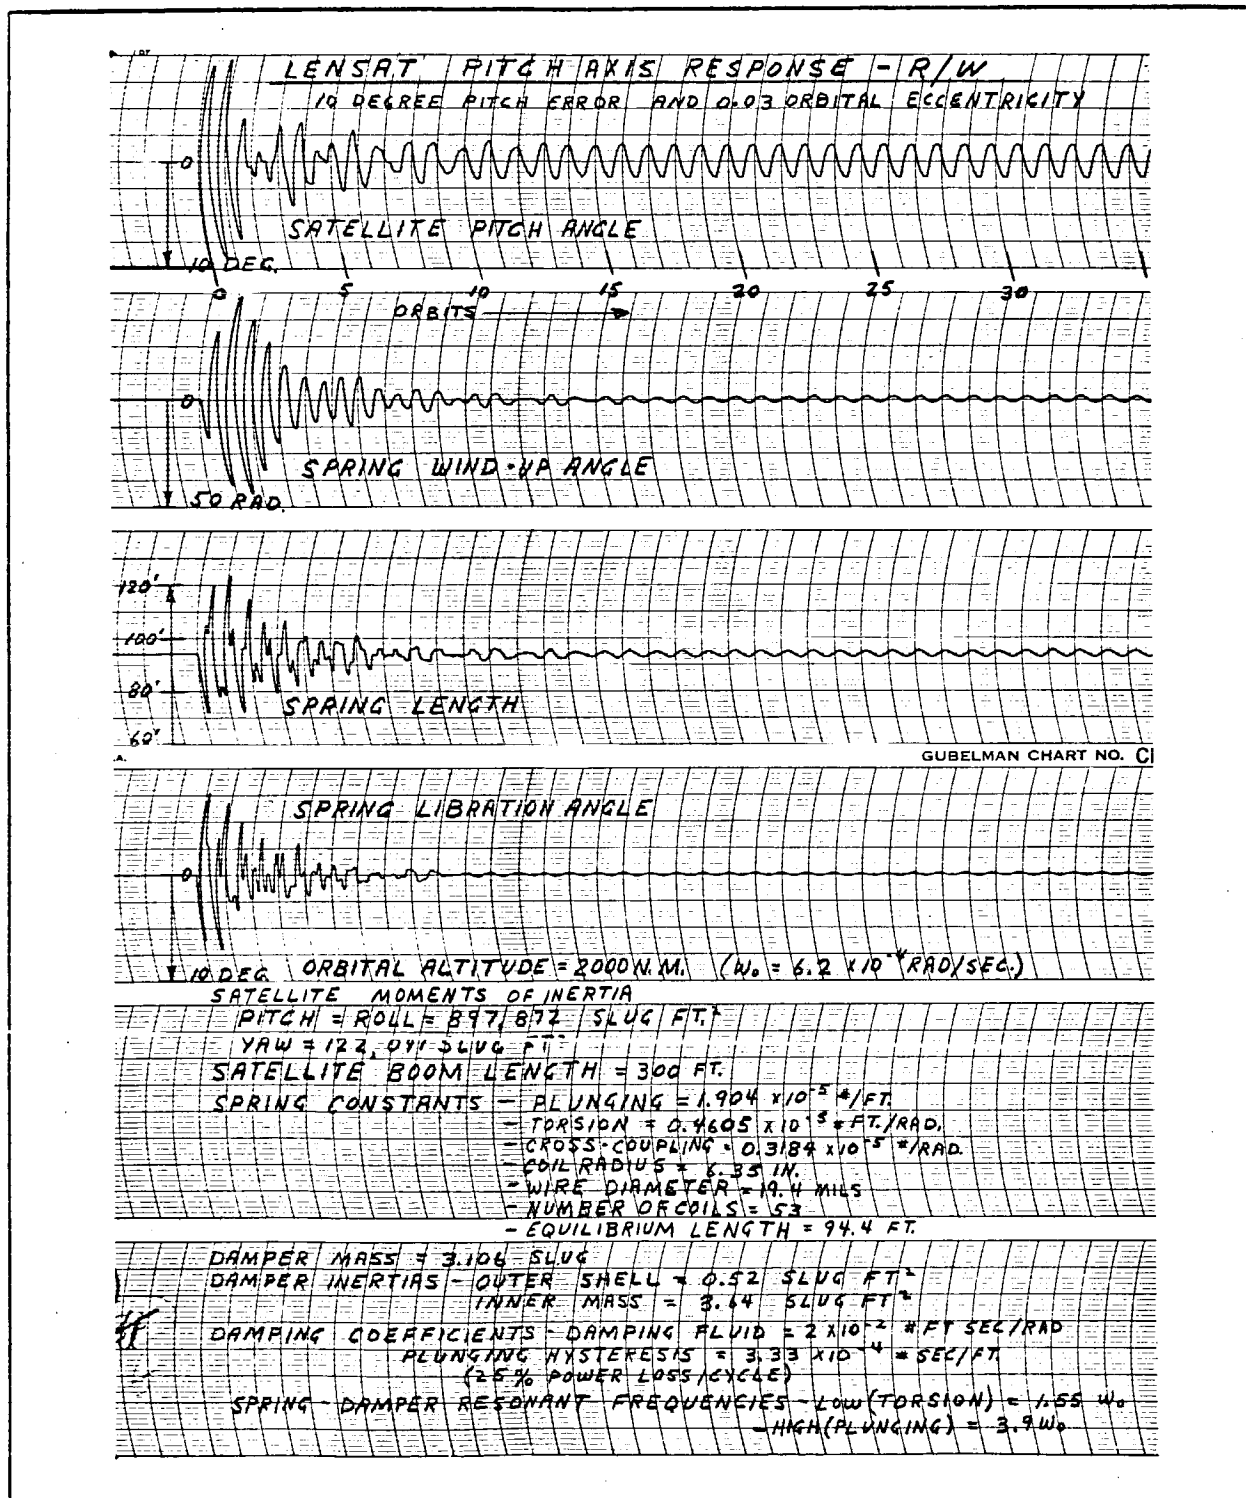 LENSAT PITCH AXIS RESPONSE - R/W
10 DEGREE PITCH ERROR AND 0.03 ORBITAL ECCENTRICITY
0
SATELLITE PITCH ANGLE
10 DEG.
0 5 10 15 20 25 30
ORBITS
0
SPRING WIND-UP ANGLE
50 RAD.
120'
100'
80'
SPRING LENGTH
60'
GUBELMAN CHART NO. C
SPRING LIBRATION ANGLE
0
10 DEG ORBITAL ALTITUDE = 2000 N.M. (W₀ = 6.2 x 10⁻⁴ RAD/SEC.)
SATELLITE MOMENTS OF INERTIA
PITCH = ROLL = 897,872 SLUG FT.²
YAW = 122,041 SLUG FT²
SATELLITE BOOM LENGTH = 300 FT.
SPRING CONSTANTS - PLUNGING = 1.904 x10⁻⁵ #/FT.
- TORSION = 0.4605 x10⁻⁵ # FT./RAD.
- CROSS-COUPLING = 0.3184 x10⁻⁵ #/RAD.
- COIL RADIUS = 6.35 IN.
- WIRE DIAMETER = 19.4 MILS
- NUMBER OF COILS = 53
- EQUILIBRIUM LENGTH = 94.4 FT.
DAMPER MASS = 3.106 SLUG
DAMPER INERTIAS - OUTER SHELL = 0.52 SLUG FT²
INNER MASS = 3.64 SLUG FT²
DAMPING COEFFICIENTS - DAMPING FLUID = 2 x10⁻² # FT SEC/RAD
PLUNGING HYSTERESIS = 3.33 x10⁻⁴ # SEC/FT.
(25% POWER LOSS/CYCLE)
SPRING-DAMPER RESONANT FREQUENCIES - LOW (TORSION) = 1.55 W₀
- HIGH (PLUNGING) = 3.9 W₀